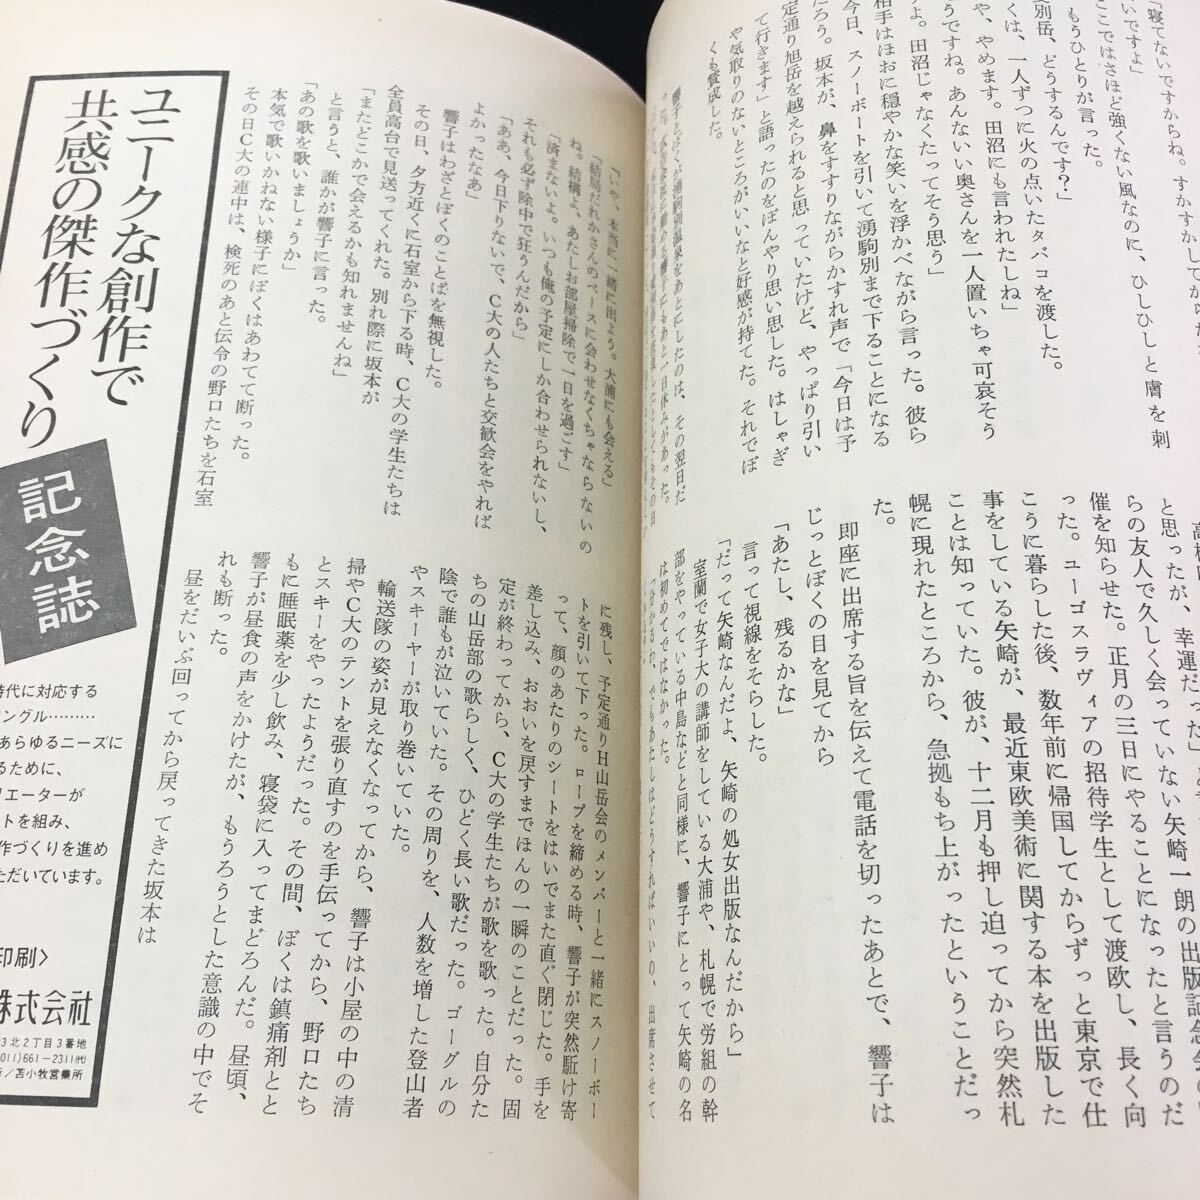 「寝てないですからね。すかすかしてから
いですよ」
ここではさほど強くない風なのに、ひしひしと膚を刺
もうひとりが言った。
別岳、どうするんです?」
くは、一人ずつに火の点いたタバコを渡した。
や、やめます。田沼にも言われたしね」
うですね。あんないい奥さんを一人置いちゃ可哀そう
すよ。田沼じゃなくたってそう思う」
相手はほおに穏やかな笑いを浮かべながら言った。彼ら
今日、スノーボートを引いて湧駒別まで下ることになる
だろう。坂本が、鼻をすすりながらかすれ声で「今日は予
定通り旭岳を越えられると思っていたけど、やっぱり引い
て行きます」と語ったのをぼんやり思い出した。はしゃぎ
や気取りのないところがいいなと好感が持てた。それでぼ
くも賛成した。
響子とぼくが湧駒別温泉をあとにしたのは、その翌日だ
と思ったが、幸運だった」
らの友人で久しく会っていない矢崎一朗の出版記念会
催を知らせた。正月の三日にやることになったと言うのだ
った。ユーゴスラヴィアの招待学生として渡欧し、長く向
こうに暮らした後、数年前に帰国してからずっと東京で仕
事をしている矢崎が、最近東欧美術に関する本を出版した
ことは知っていた。彼が、十二月も押し迫ってから突然札
幌に現れたところから、急拠もち上がったということだっ
た。
即座に出席する旨を伝えて電話を切ったあとで、響子は
じっとぼくの目を見てから
「あたし、残るかな」
言って視線をそらした。
「だって矢崎なんだよ、矢崎の処女出版なんだから」
室蘭で女子大の講師をしている大浦や、札幌で労組の幹
部をやっている中島などと同様に、響子にとって矢崎の名
は初めてではなかった。
「分かるわ、でもあたしはどうすればいいの、出席させて
「いや、本当に一緒に出よう。大浦にも会える」
「結局だれかさんのペースに会わせなくちゃならないの
ね。結構よ、あたしお部屋掃除で一日を過ごす」
「済まないよ。いつも俺の予定にしか合わせられないし、
それも必ず途中で狂うんだから」
「ああ、今日下りないで、C大の人たちと交歓会をやれば
よかったなあ」
響子はわざとぼくのことばを無視した。
その日、夕方近くに石室から下る時、C大の学生たちは
全員高台で見送ってくれた。別れ際に坂本が
「またどこかで会えるかも知れませんね」
と言うと、誰かが響子に言った。
「あの歌を歌いましょうか」
本気で歌いかねない様子にぼくはあわてて断った。
その日C大の連中は、検死のあと伝令の野口たちを石室
に残し、予定通りH山岳会のメンバーと一緒にスノーボー
トを引いて下った。ロープを締める時、響子が突然駈け寄
って、顔のあたりのシートをはいでまた直ぐ閉じた。手を
差し込み、おおいを戻すまでほんの一瞬のことだった。固
定が終わってから、C大の学生たちが歌を歌った。自分た
ちの山岳部の歌らしく、ひどく長い歌だった。ゴーグルの
陰で誰もが泣いていた。その周りを、人数を増した登山者
やスキーヤーが取り巻いていた。
輸送隊の姿が見えなくなってから、響子は小屋の中の清
掃やC大のテントを張り直すのを手伝ってから、野口たち
とスキーをやったようだった。その間、ぼくは鎮痛剤とと
もに睡眠薬を少し飲み、寝袋に入ってまどろんだ。昼頃、
響子が昼食の声をかけたが、もうろうとした意識の中でそ
れも断った。
昼をだいぶ回ってから戻ってきた坂本は
ユニークな創作で
共感の傑作づくり
記念誌
時代に対応する
ングル………
あらゆるニーズに
るために、
エーターが
トを組み、
作づくりを進め
ただいています。
印刷〉
株式会社
3北2丁目3番地
011)661-2311㈹
所/苫小牧営業所